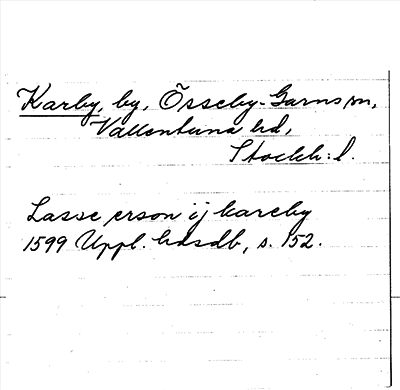 Karby, by, Össeby-Garns sn,
Vallentuna hd,
Stockh:l.
Lasse erson ij kareby
1599 Uppl. hdsdb, s. 152.